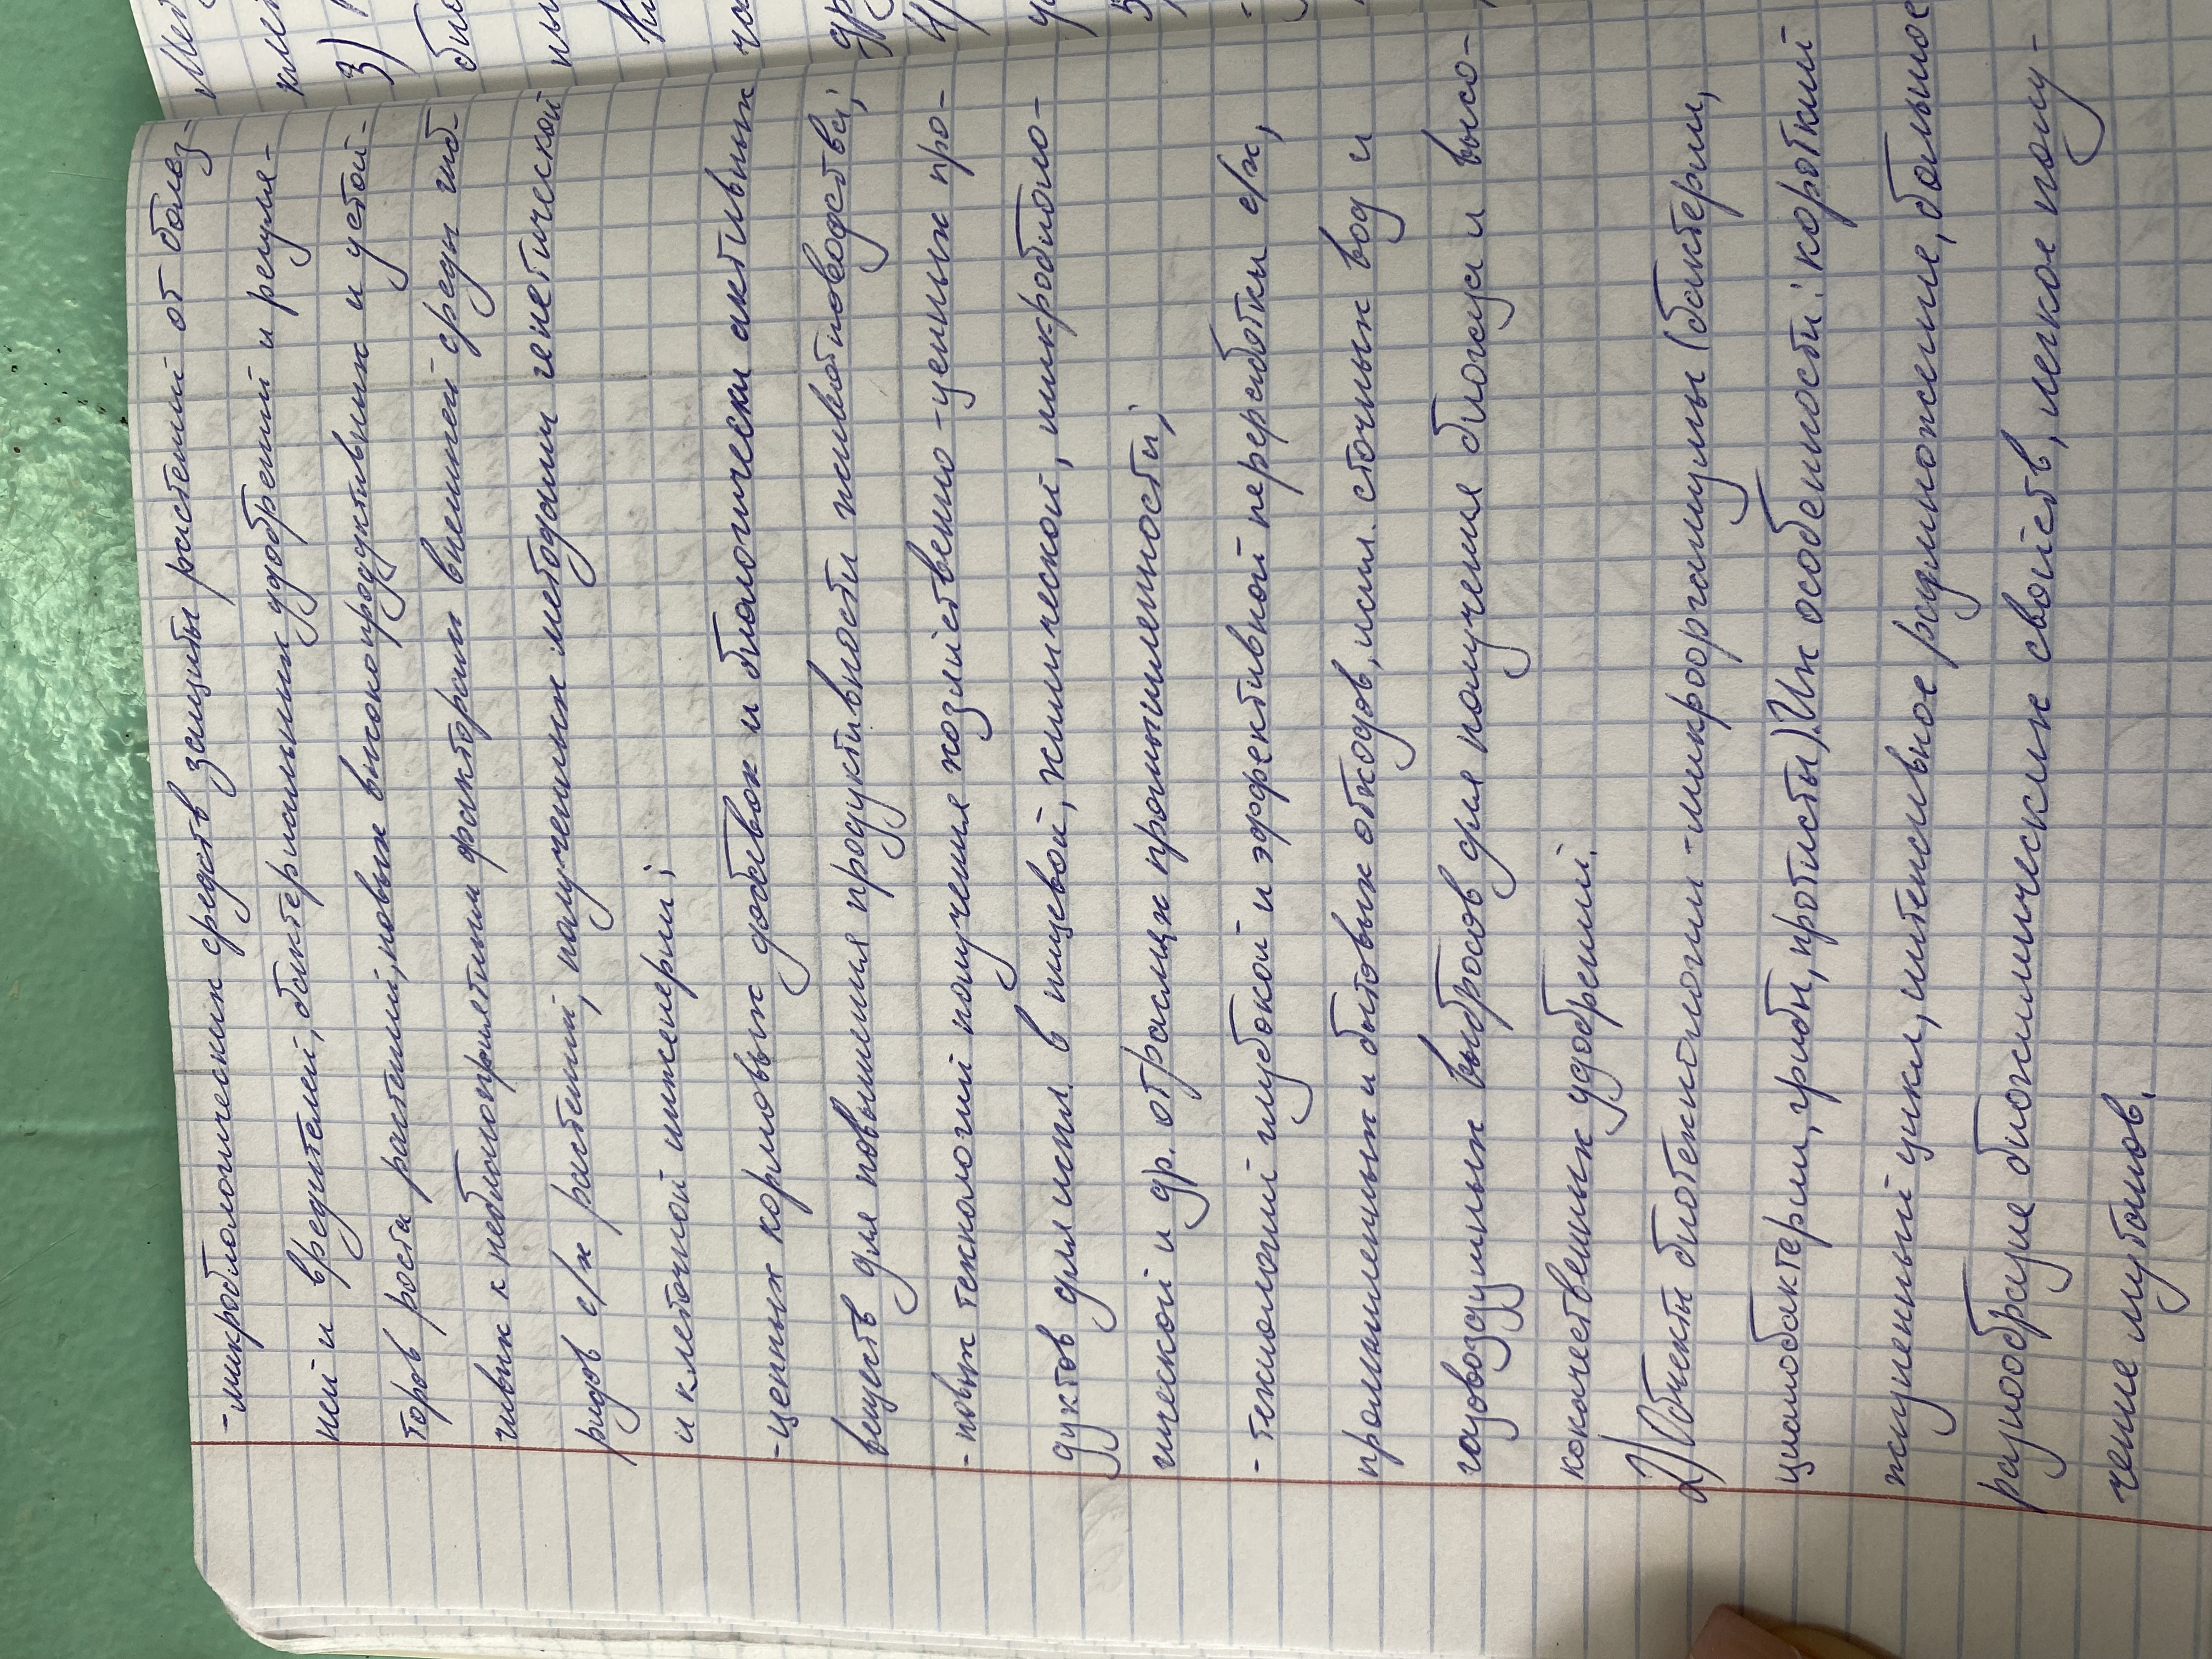 -микробиологических средств защиты растений от болез-
ней и вредителей, бактериальных удобрений и регуля-
торов роста растений, новых высокопродуктивных и устой-
чивых к неблагоприятным факторам внешней среды гиб-
ридов с/х растений, полученных методами генетической
и клеточной инженерии;
-ценных кормовых добавок и биологически активных
веществ для повышения продуктивности животноводства;
-новых технологий получения хозяйственно-ценных про-
дуктов для исп. в пищевой, химической, микробиоло-
гической и др. отраслях промышленности;
-технологий глубокой и эффективной переработки с/х,
промышленных и бытовых отходов, исп. сточных вод и
газовоздушных выбросов для получения биогаза и высо-
кокачественных удобрений.
2) Объекты биотехнологии -микроорганизмы (бактерии,
цианобактерии, грибы, протисты). Их особенности: короткий
жизненный цикл, интенсивное размножение, большое
разнообразие биохимических свойств, легкое полу-
чение мутантов.
3)
4)